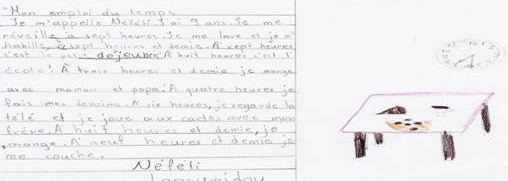 "Mon emploi du temps
Je m'appelle Néféli J'ai 9 ans. Je me
réveille a sept heures. Je me lave et je m'
habille, a sept heures et demie. A sept heures
c'est le petit déjeuner A huit heures c'est l'
école! A trois heures et demie je mange
avec maman et papa. A quatre heures je
fais mes devoirs. A six heures, je regarde la
télé et je joue aux cartes avec mon
frère. A huit heures et demie, je
mange. A neuf heures et demie je
me couche.
Néféli